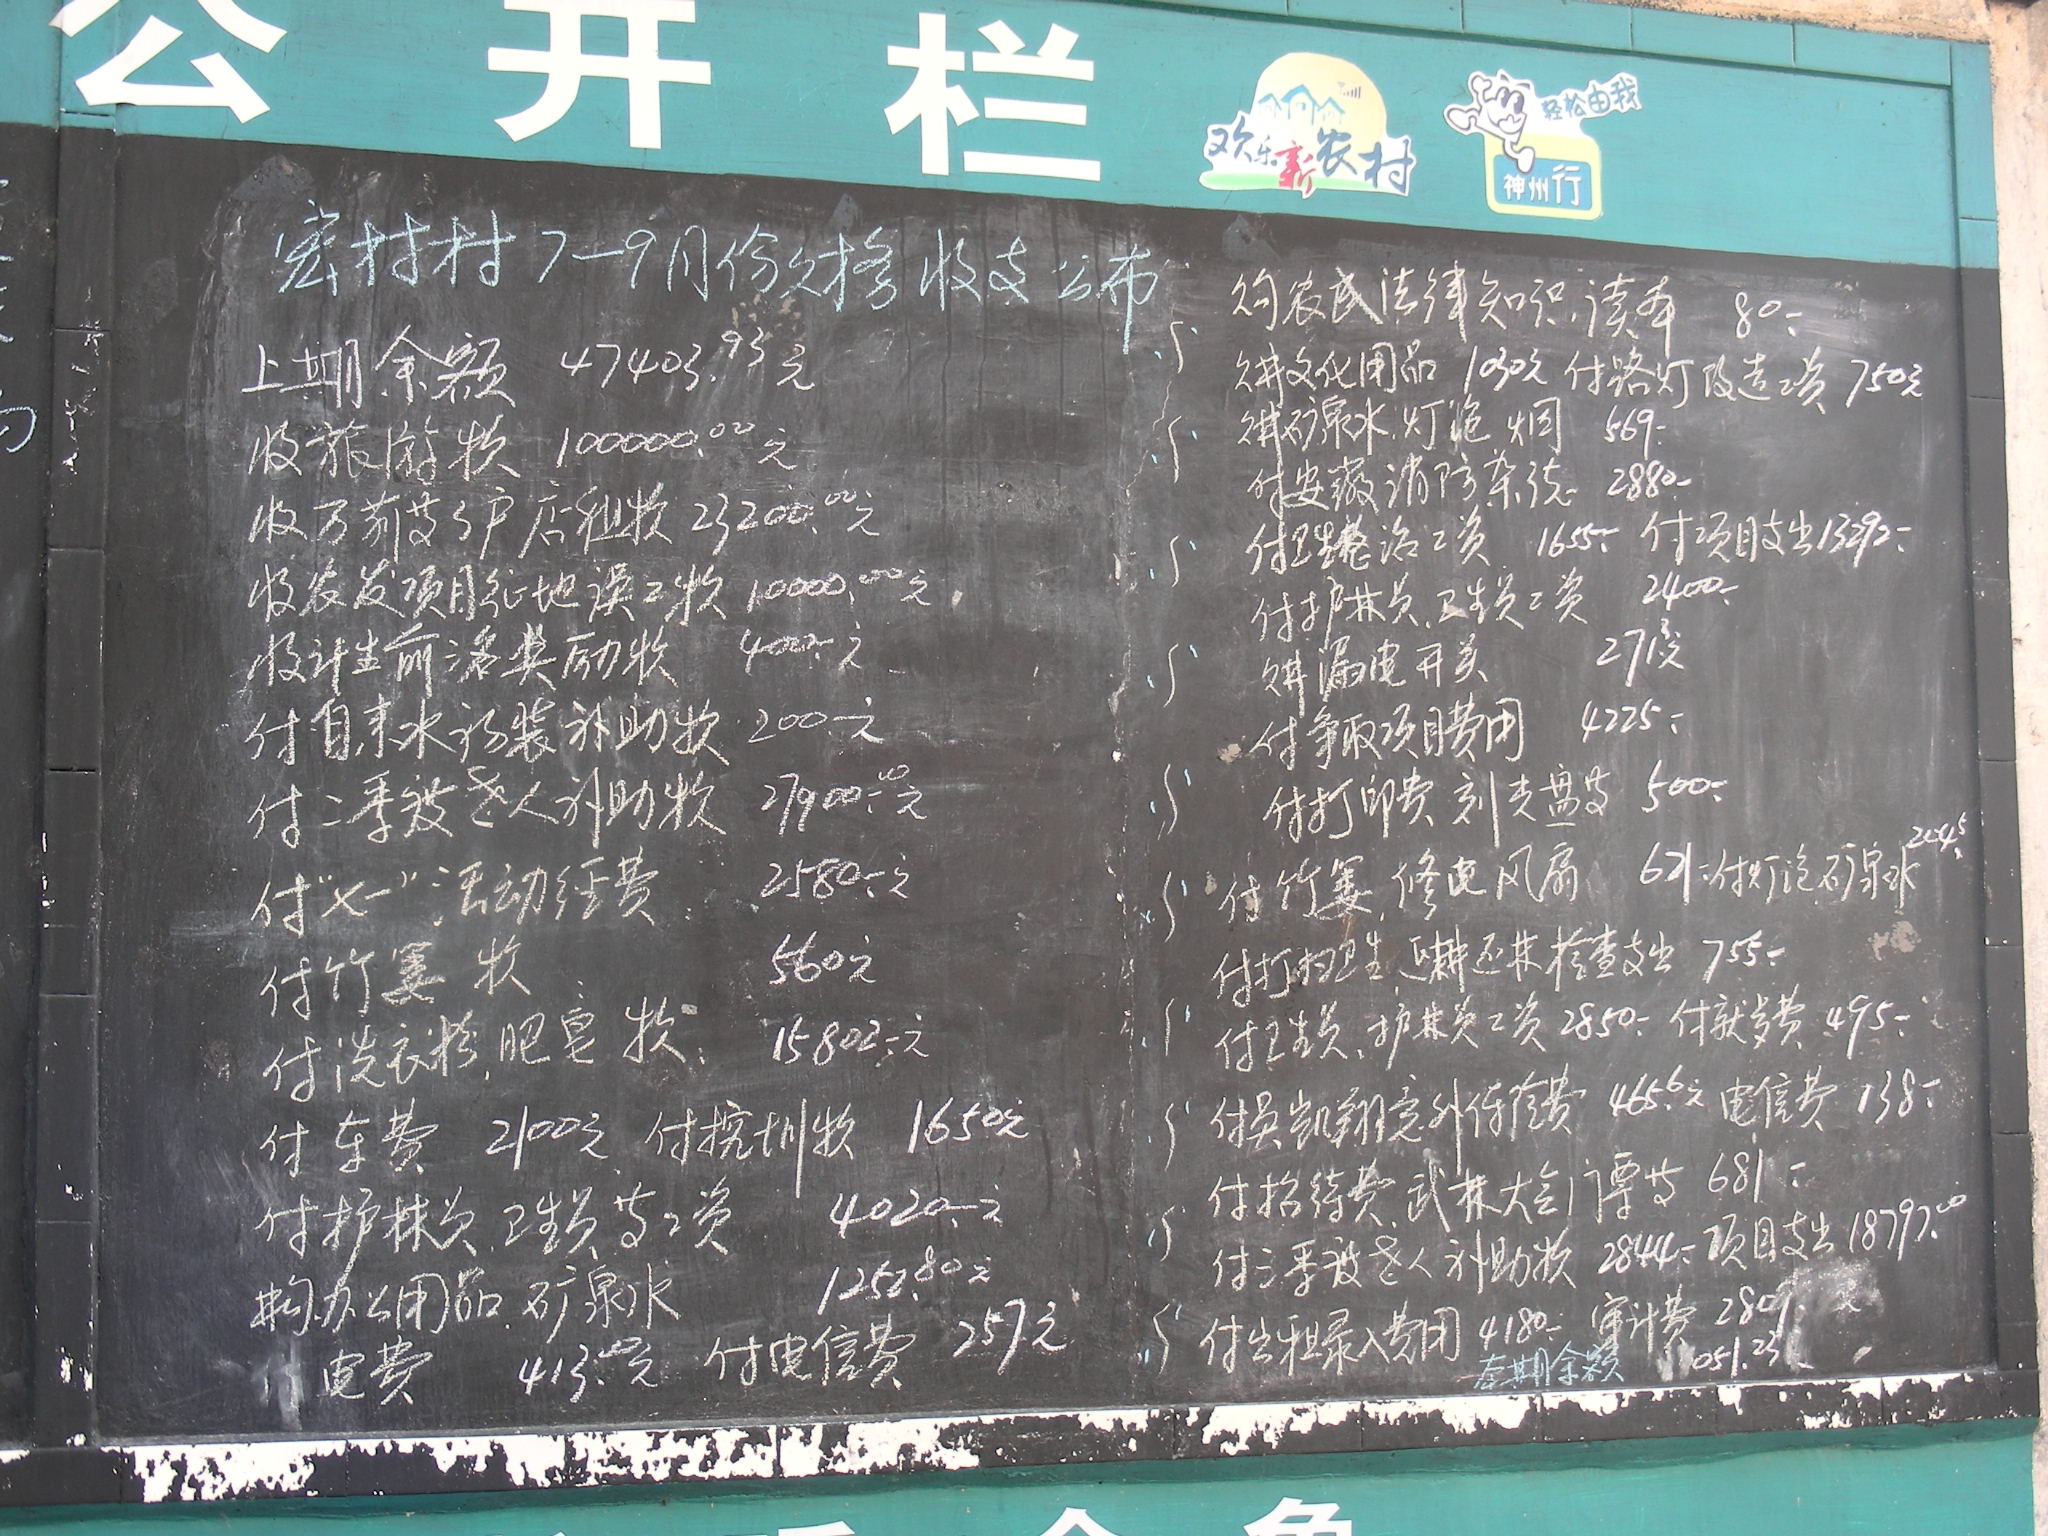 公开栏
欢乐新农村
轻松由我
神州行
村村7—9月份财务收支公布
上期余额 47403.93元
收旅游款 100000.00元
收万 等3户店租款 23200.00元
收农发项目征地误工款 10000.00元
收计生前 奖励款 400元
付自来水 装补助款 200元
付二季度老人补助款 27900元
付"七一"活动经费 2580元
付竹 款 560元
付洗衣粉、肥皂款 15802元
付车费 2100元 付挖圳款 1650元
付护林员、卫生员等工资 4020元
购办公用品、矿泉水 1252.80元
电费 413.00元 付电信费 257元
购农民法律知识读本 80
购文化用品 1030元 付路灯改造工资 750元
购矿泉水、灯泡、烟 569
付安徽消防杂 2880
付卫生整治工资 1655 付项目支出 13292
付护林员、卫生员工资 2400
购漏电开关 271元
付争取项目费用 4225
付打印费、刻光盘等 500
付竹 、修电风扇 621 付灯泡、矿泉水
付打扫卫生、退耕还林检查支出 755
付卫生员、护林员工资 2850 付 费 495
付吴凯翔意外保险费 465.6元 电信费 138
付招待费、武林大会门票等 681
付三季度老人补助款 2844 项目支出 18797.00
付出租录入费用 4180 审计费 280
本期余额 051.23